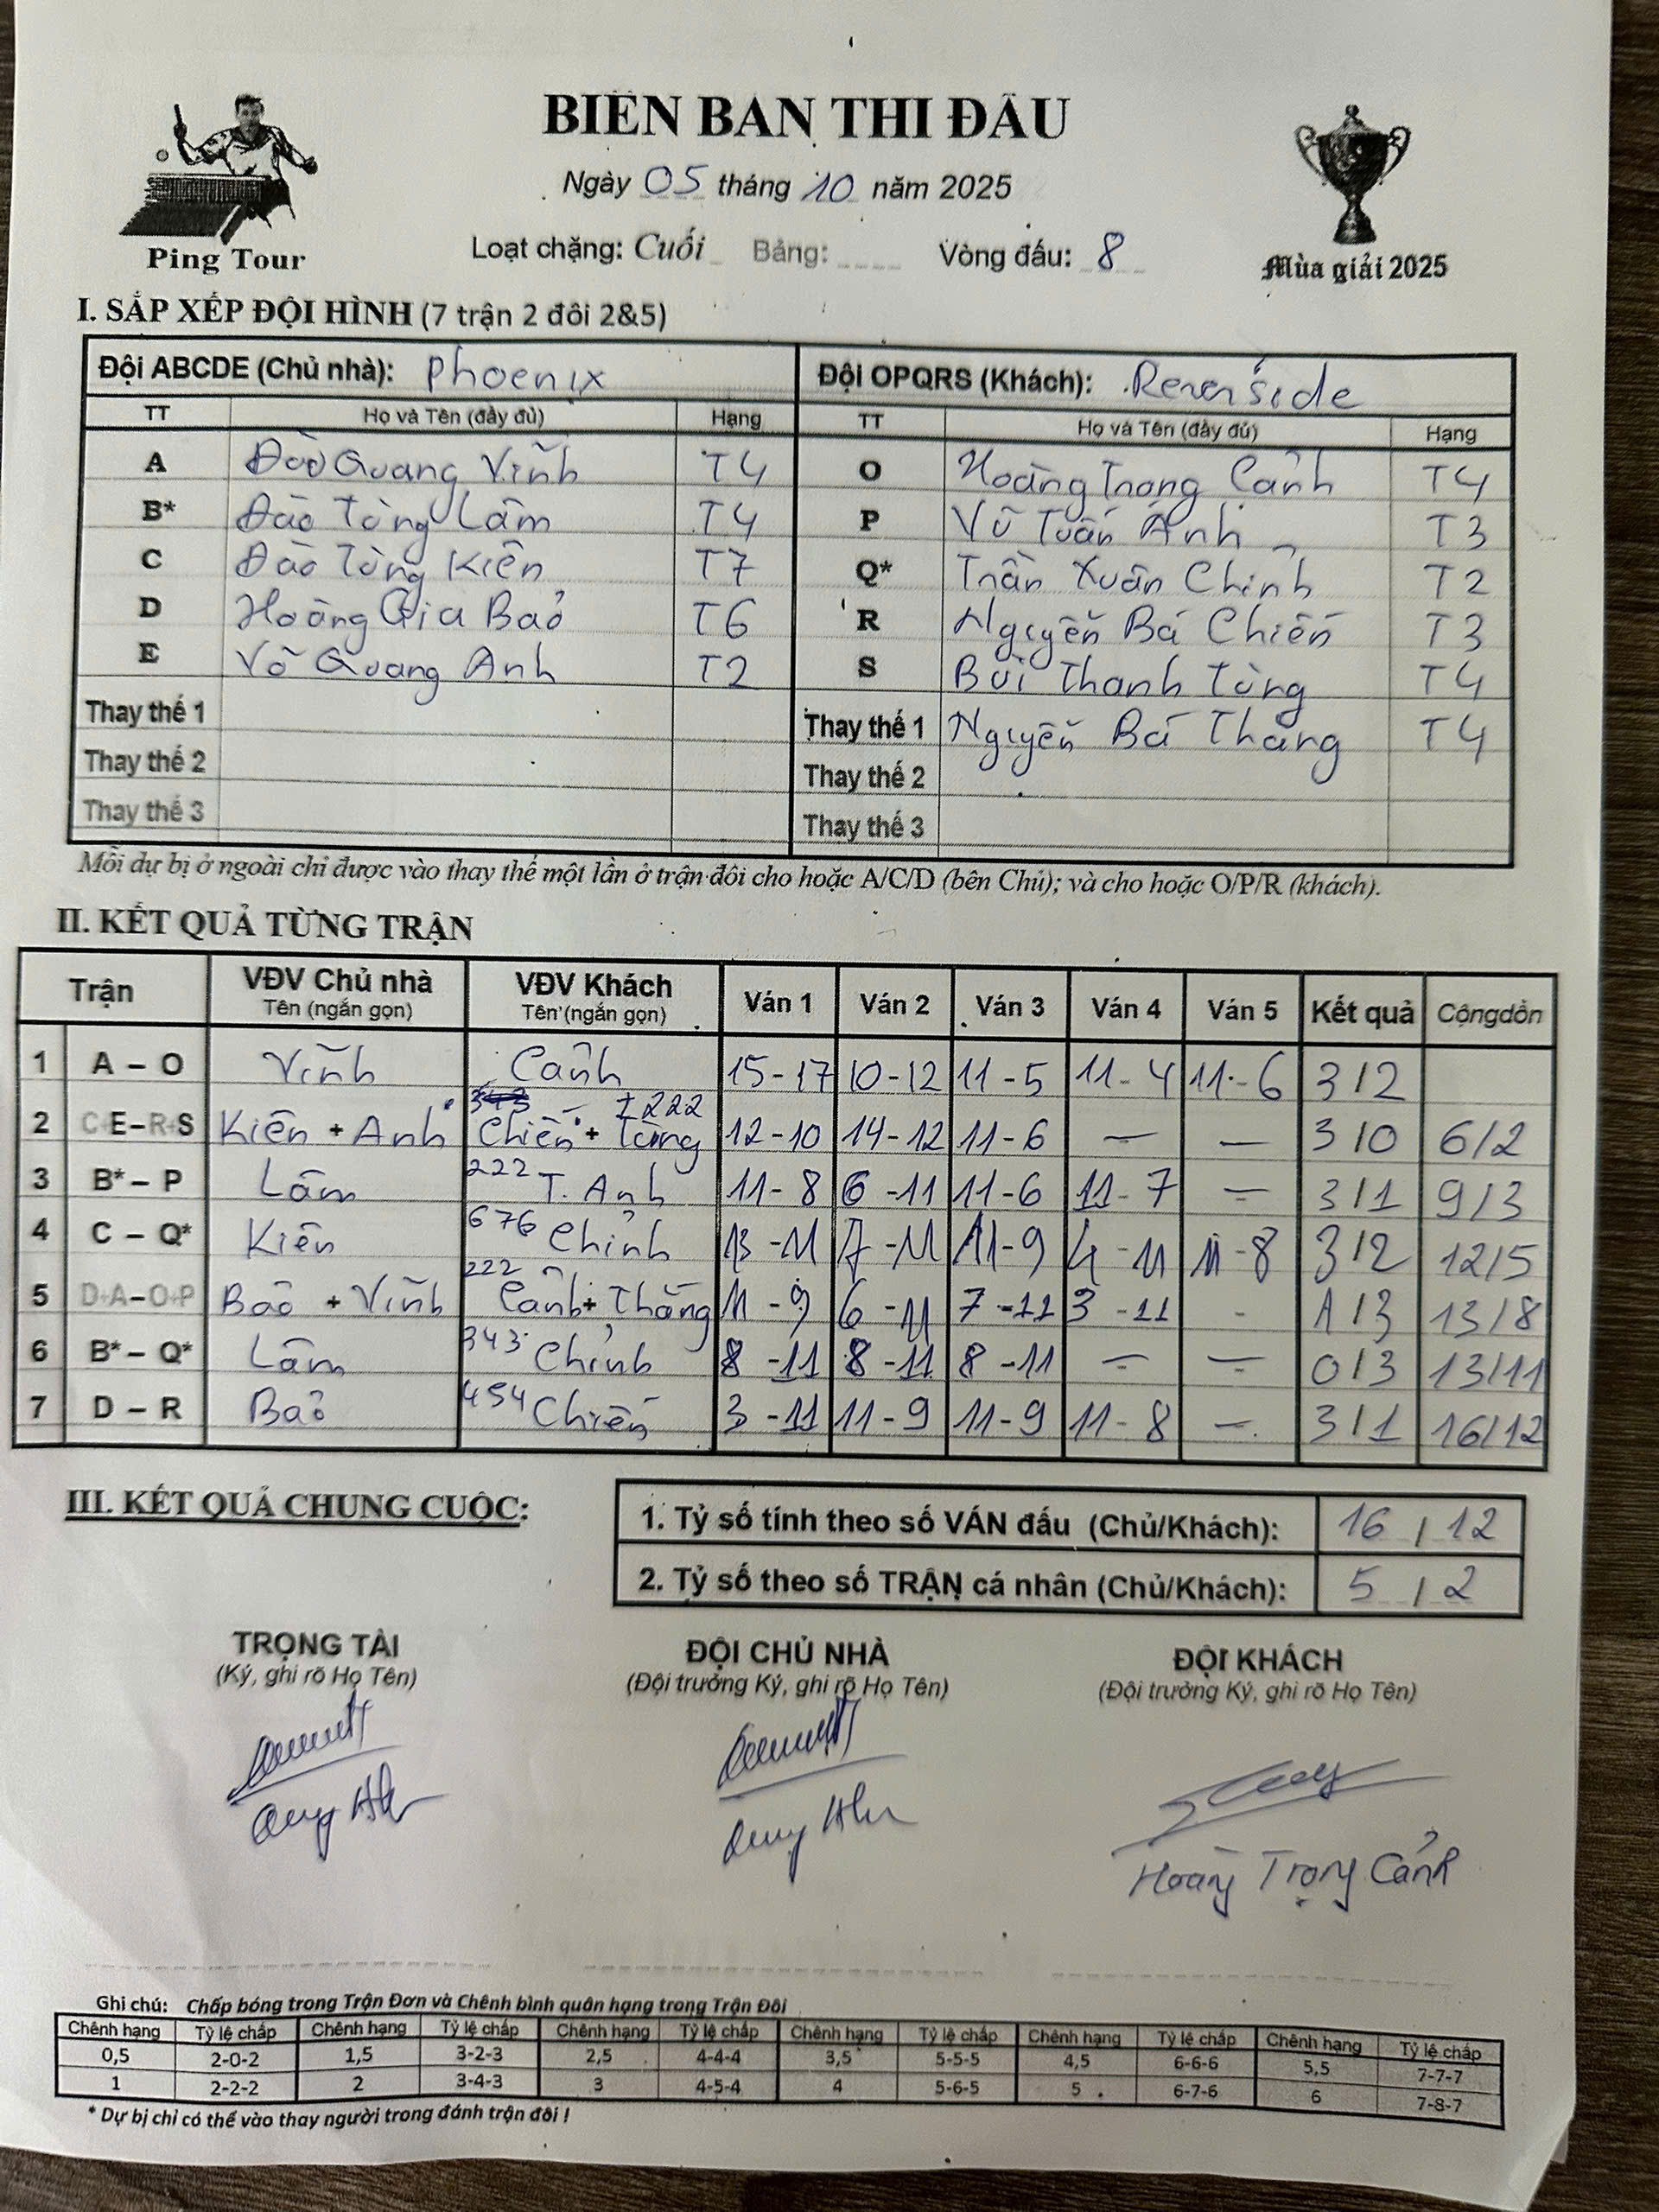 BIÊN BẢN THI ĐẤU
Ngày 05 tháng 10 năm 2025
Ping Tour
Loạt chặng: Cuối Bảng: Vòng đấu: 8
Mùa giải 2025
I. SẮP XẾP ĐỘI HÌNH (7 trận 2 đôi 2&5)
Đội ABCDE (Chủ nhà): Phoenix Đội OPQRS (Khách): Reverside
TT Họ và Tên (đầy đủ) Hạng TT Họ và Tên (đầy đủ) Hạng
A Đào Quang Vĩnh T4 O Hoàng Trọng Cảnh T4
B* Đào Tùng Lâm T4 P Vũ Tuấn Anh T3
C Đào Tùng Kiên T7 Q* Trần Xuân Chỉnh T2
D Hoàng Gia Bảo T6 R Nguyễn Bá Chiến T3
E Võ Quang Anh T2 S Bùi Thanh Tùng T4
Thay thế 1 Thay thế 1 Nguyễn Bá Thắng T4
Thay thế 2 Thay thế 2
Thay thế 3 Thay thế 3
Mỗi dự bị ở ngoài chỉ được vào thay thế một lần ở trận đôi cho hoặc A/C/D (bên Chủ); và cho hoặc O/P/R (khách).
II. KẾT QUẢ TỪNG TRẬN
Trận VĐV Chủ nhà Tên (ngắn gọn) VĐV Khách Tên (ngắn gọn) Ván 1 Ván 2 Ván 3 Ván 4 Ván 5 Kết quả Cộngdồn
1 A – O Vĩnh Cảnh 15-17 10-12 11-5 11-4 11-6 3/2
2 C+E–R+S Kiên + Anh 222 Chiến + Tùng 12-10 14-12 11-6 — — 3/0 6/2
3 B* – P Lâm 222 T. Anh 11-8 6-11 11-6 11-7 — 3/1 9/3
4 C – Q* Kiên 676 Chỉnh 13-11 7-11 11-9 4-11 11-8 3/2 12/5
5 D+A–O+P Bảo + Vĩnh 222 Cảnh + Thắng 11-9 6-11 7-11 3-11 - 1/3 13/8
6 B* – Q* Lâm 343 Chỉnh 8-11 8-11 8-11 — — 0/3 13/11
7 D – R Bảo 454 Chiến 3-11 11-9 11-9 11-8 — 3/1 16/12
III. KẾT QUẢ CHUNG CUỘC:
1. Tỷ số tính theo số VÁN đấu (Chủ/Khách): 16 / 12
2. Tỷ số theo số TRẬN cá nhân (Chủ/Khách): 5 / 2
TRỌNG TÀI ĐỘI CHỦ NHÀ ĐỘI KHÁCH
(Ký, ghi rõ Họ Tên) (Đội trưởng Ký, ghi rõ Họ Tên) (Đội trưởng Ký, ghi rõ Họ Tên)
Hoàng Trọng Cảnh
Ghi chú: Chấp bóng trong Trận Đơn và Chênh bình quân hạng trong Trận Đôi
Chênh hạng Tỷ lệ chấp Chênh hạng Tỷ lệ chấp Chênh hạng Tỷ lệ chấp Chênh hạng Tỷ lệ chấp Chênh hạng Tỷ lệ chấp Chênh hạng Tỷ lệ chấp
0,5 2-0-2 1,5 3-2-3 2,5 4-4-4 3,5 5-5-5 4,5 6-6-6 5,5 7-7-7
1 2-2-2 2 3-4-3 3 4-5-4 4 5-6-5 5 6-7-6 6 7-8-7
* Dự bị chỉ có thể vào thay người trong đánh trận đôi !